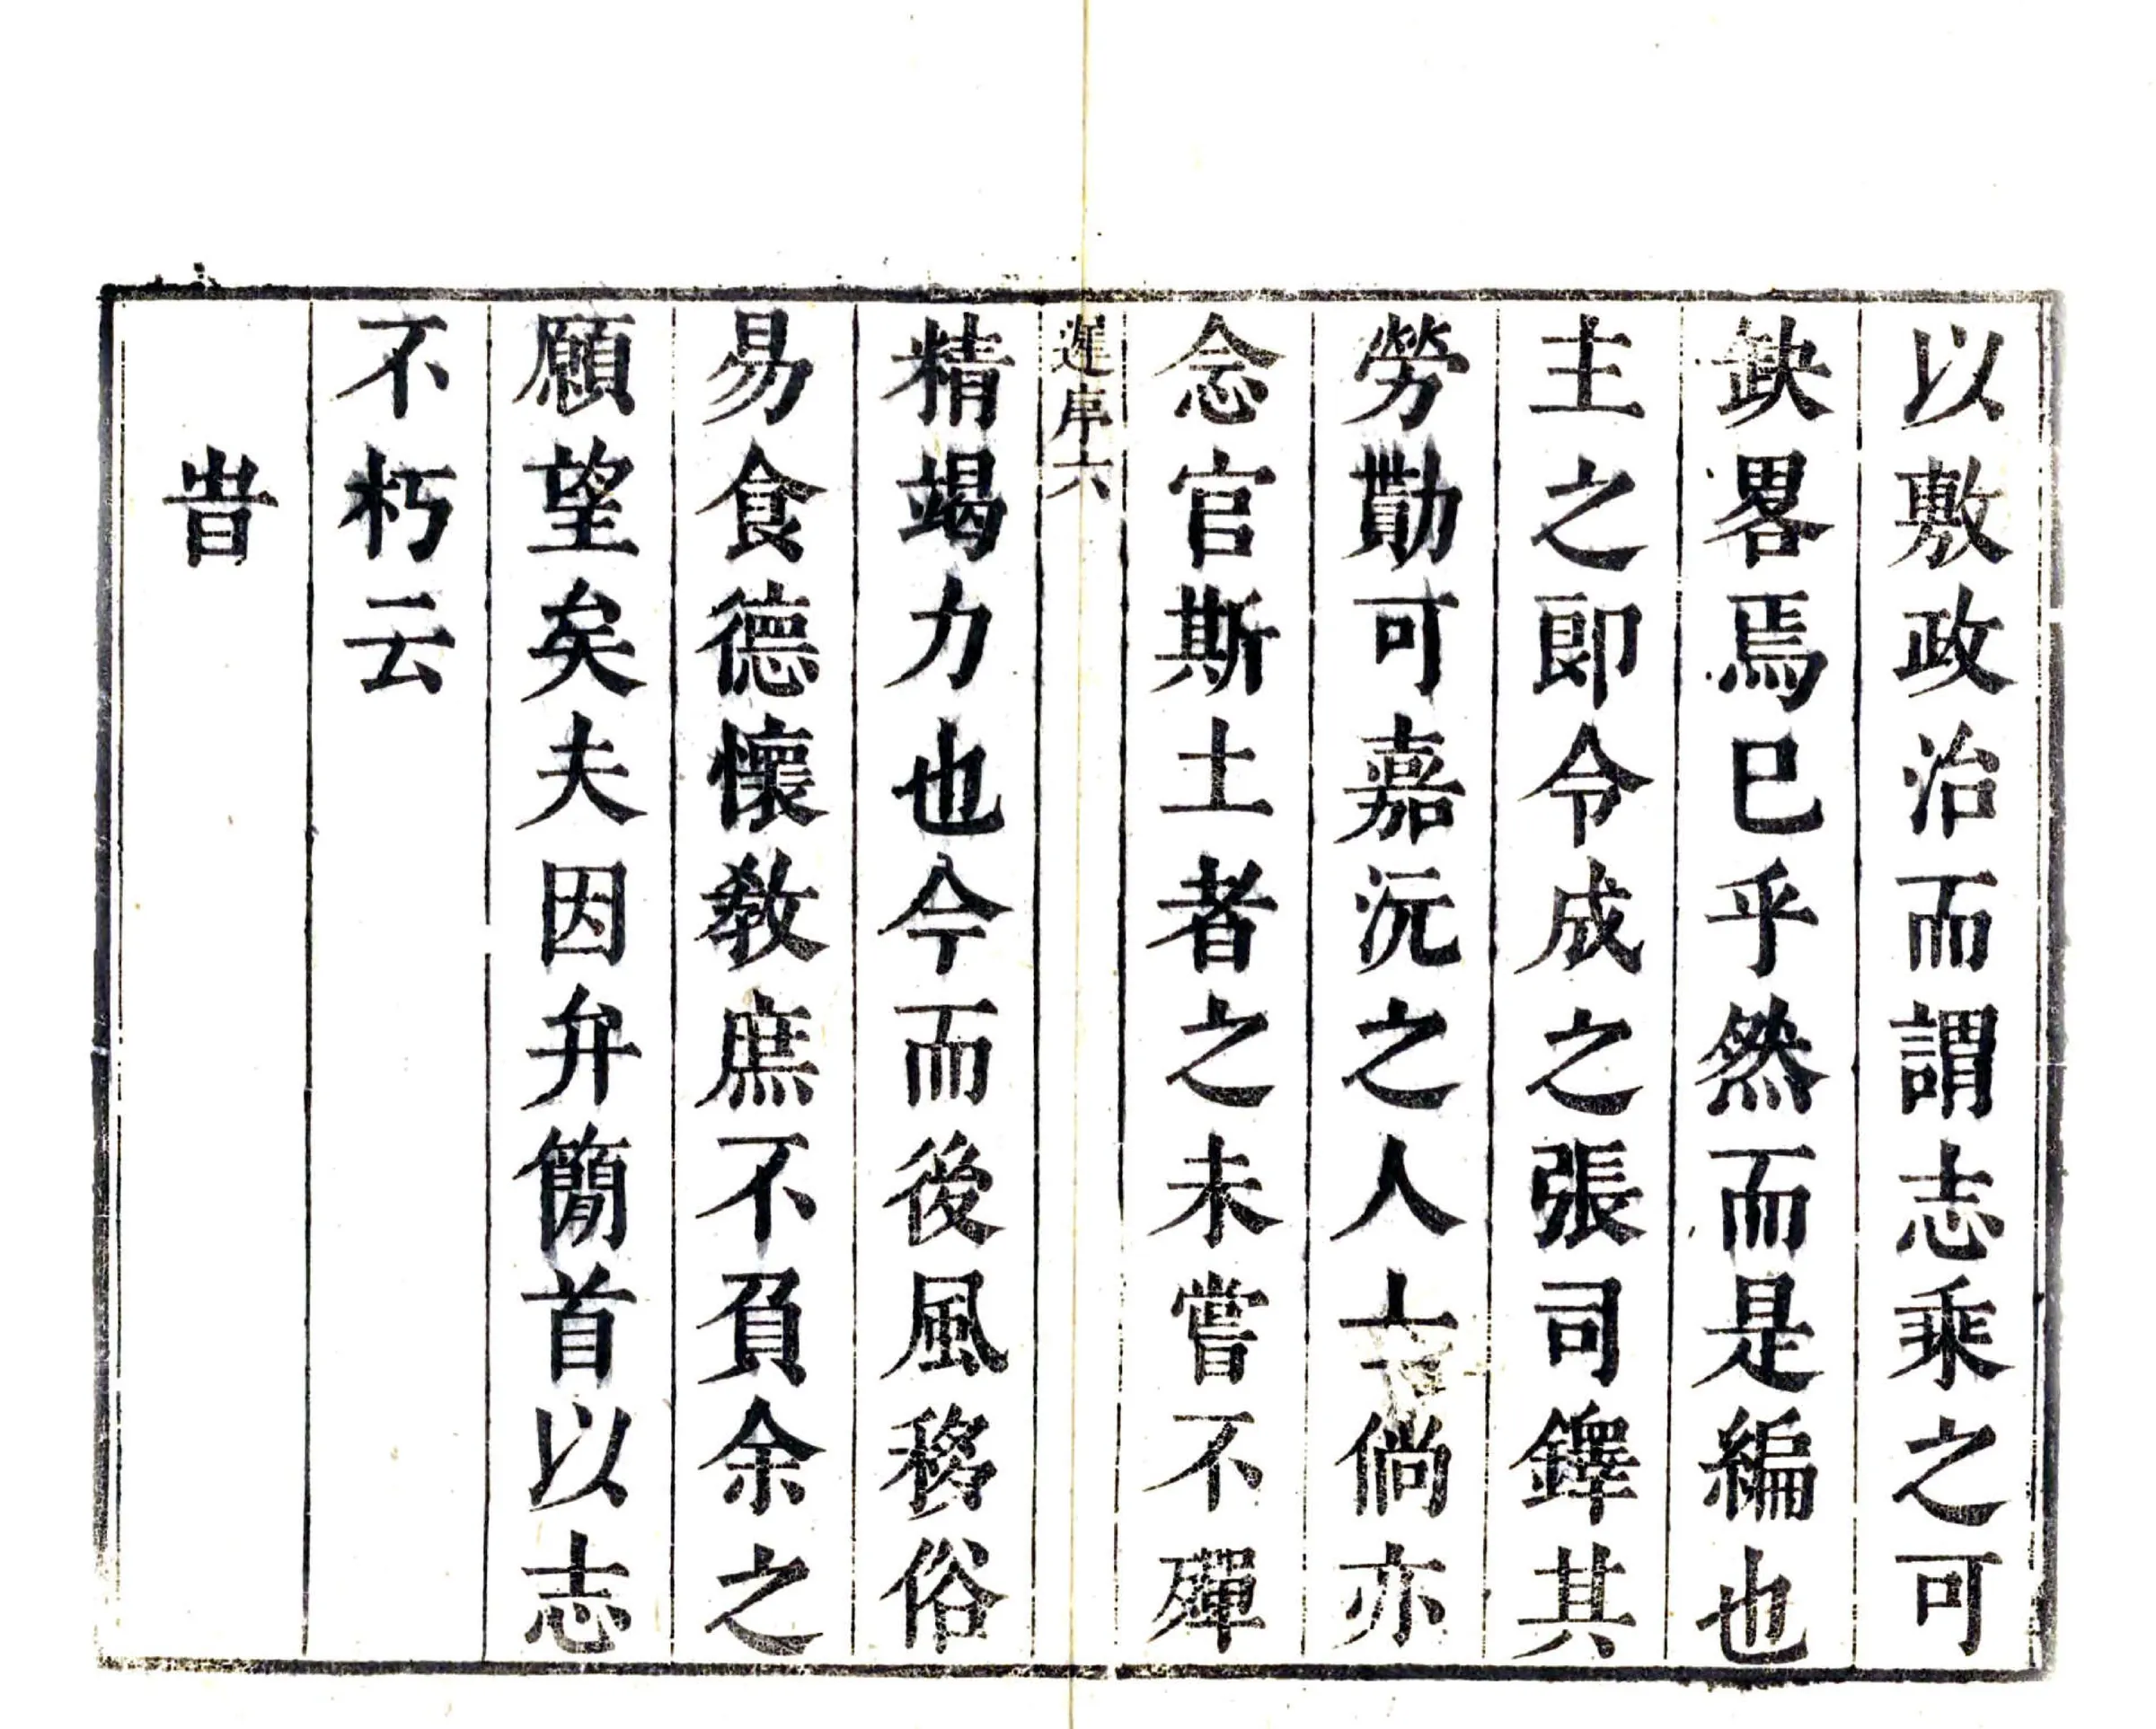 以敷政治而謂志乘之可
缺畧焉巳乎然而是編也
主之卽令成之張司鐸其
勞勩可嘉沅之人士倘亦
念官斯土者之未嘗不殫
遲序六
精竭力也今而後風移俗
易食德懷敎庶不負余之
願望矣夫因弁簡首以志
不朽云
旹